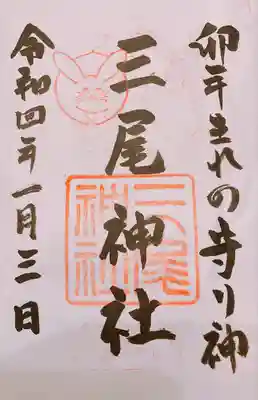 卯年生れの守り神
三尾神社
三尾
神社
令和四年一月三日